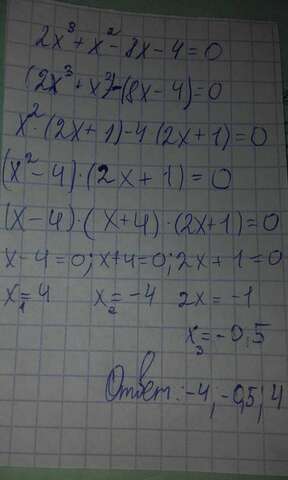 2x³ + x² - 8x - 4 = 0
(2x³ + x²) - (8x - 4) = 0
x² · (2x + 1) - 4 (2x + 1) = 0
(x² - 4) · (2x + 1) = 0
(x - 4) · (x + 4) · (2x + 1) = 0
x - 4 = 0; x + 4 = 0; 2x + 1 = 0
x₁ = 4 x₂ = -4 2x = -1
x₃ = -0,5
Ответ: -4; -0,5; 4